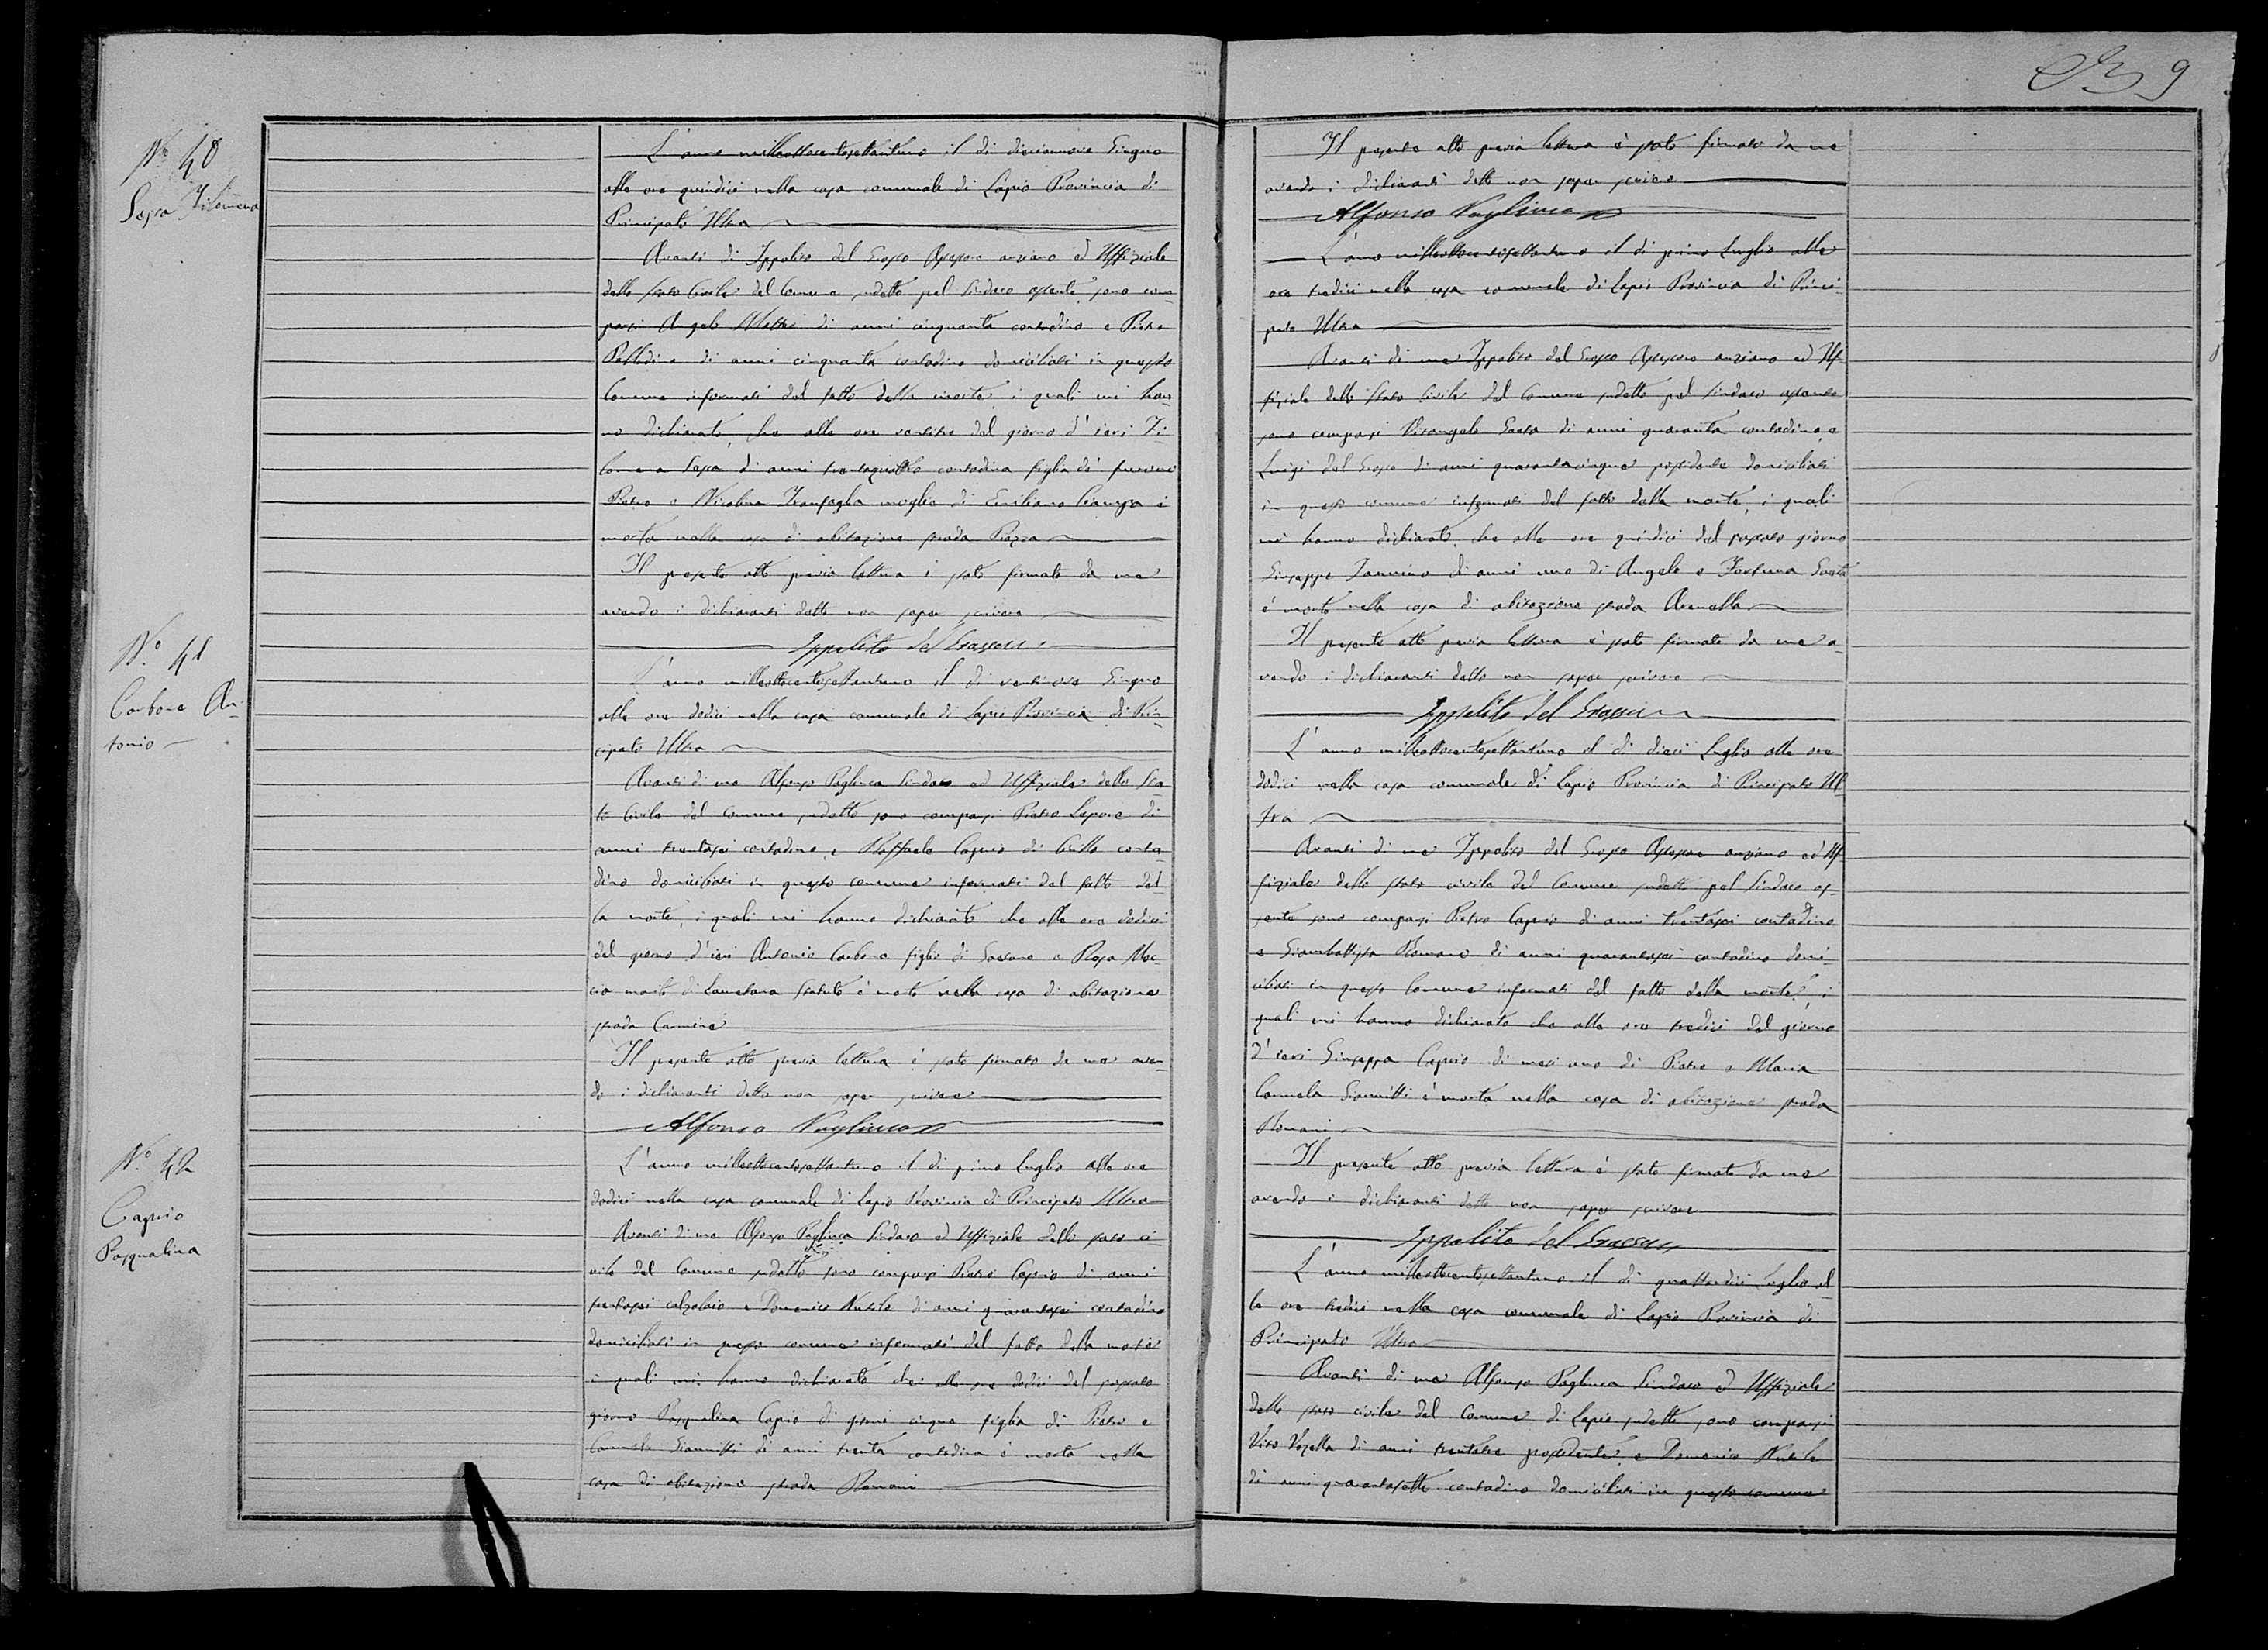 9
Nº 40
Sepa Filomena
L'anno milleottocentosettantuno il di diciannove Giugno
alle ore quindici nella casa comunale di Lapio Provincia di
Principato Ultra
Avanti di Ippolito del Grosso Assessore anziano ed Uffiziale
dello stato Civile del Comune sudetto pel Sindaco assente sono com-
parsi Angelo di anni cinquanta contadino e Pietro
di anni cinquanta contadino domiciliati in questo
Comune informati del fatto della morte, i quali mi han-
no dichiarato, che alle ore ventitre del giorno d'ieri Fi-
lomena Sepa di anni trentaquattro contadina figlia di furono
Pietro e Nicolina moglie di Emiliano Ciampa è
morta nella casa di abitazione strada Piazza
Il presente atto previa lettura è stato firmato da me
avendo i dichiaranti detto non saper scrivere
Ippolito del Grosso
Nº 41
Carbone An-
tonio
L'anno milleottocentosettantuno il di Giugno
alle ore dodici nella casa comunale di Lapio Provincia di Prin-
cipato Ultra
Avanti di me Alfonso Pagliuca Sindaco ed Uffiziale dello Sta-
to Civile del Comune sudetto sono comparsi Pietro Lepore di
anni trentasei contadino, e Raffaele Caprio di Cirillo conta-
dino domiciliati in questo comune informati del fatto del-
la morte, i quali mi hanno dichiarato che alle ore dodici
del giorno d'ieri Antonio Carbone figlio di Gaetano e Rosa
marito di è morto nella casa di abitazione
strada Carmine
Il presente atto previa lettura è stato firmato da me aven-
do i dichiaranti detto non saper scrivere
Alfonso Pagliuca
Nº 42
Caprio
Pasqualina
L'anno milleottocentosettantuno il di primo Luglio alle ore
dodici nella casa comunale di Lapio Provincia di Principato Ultra
Avanti di me Alfonso Pagliuca Sindaco ed Uffiziale dello stato ci-
vile del Comune sudetto sono comparsi Pietro Caprio di anni
trentasei calzolaio e Domenico Nutile di anni quarantasei contadino
domiciliati in questo comune informati del fatto della morte
i quali mi hanno dichiarato che alle ore dodici del passato
giorno Pasqualina Caprio di giorni cinque figlia di Pietro e
Carmela Giannitti di anni trenta contadina è morta nella
casa di abitazione strada Romani
Il presente atto previa lettura è stato firmato da me
avendo i dichiaranti detto non saper scrivere
Alfonso Pagliuca
L'anno milleottocentosettantuno il di primo Luglio alle
ore tredici nella casa comunale di Lapio Provincia di Princi-
pato Ultra
Avanti di me Ippolito del Grosso Assessore anziano ed Uf-
fiziale dello stato civile del Comune sudetto pel Sindaco assente
sono comparsi Gaeta di anni quaranta contadino, e
Luigi del Grosso di anni quarantacinque possidente domiciliati
in questo comune informati del fatto della morte, i quali
mi hanno dichiarato, che alle ore quindici del passato giorno
Giuseppe Iannino di anni uno di Angelo e Fortuna Gaeta
è morto nella casa di abitazione strada Arenella
Il presente atto previa lettura è stato firmato da me a-
vendo i dichiaranti detto non saper scrivere
Ippolito del Grosso
L'anno milleottocentosettantuno il di dieci Luglio alle ore
dodici nella casa comunale di Lapio Provincia di Principato Ul-
tra
Avanti di me Ippolito del Grosso Assessore anziano ed Uf-
fiziale dello stato civile del Comune sudetto pel Sindaco as-
sente sono comparsi Pietro Caprio di anni trentasei contadino
e Giambattista Romano di anni quarantasei contadino domi-
ciliati in questo Comune informati del fatto della morte, i
quali mi hanno dichiarato che alle ore tredici del giorno
d'ieri Giuseppa Caprio di mesi uno di Pietro e Maria
Carmela Giannitti è morta nella casa di abitazione strada
Romani
Il presente atto previa lettura è stato firmato da me
avendo i dichiaranti detto non saper scrivere
Ippolito del Grosso
L'anno milleottocentosettantuno il di quattordici Luglio al-
le ore tredici nella casa comunale di Lapio Provincia di
Principato Ultra
Avanti di me Alfonso Pagliuca Sindaco ed Uffiziale
dello stato civile del Comune di Lapio sudetto sono comparsi
Vito Vozella di anni trentatre possidente, e Domenico Nutile
di anni quarantasette contadino domiciliati in questo comune